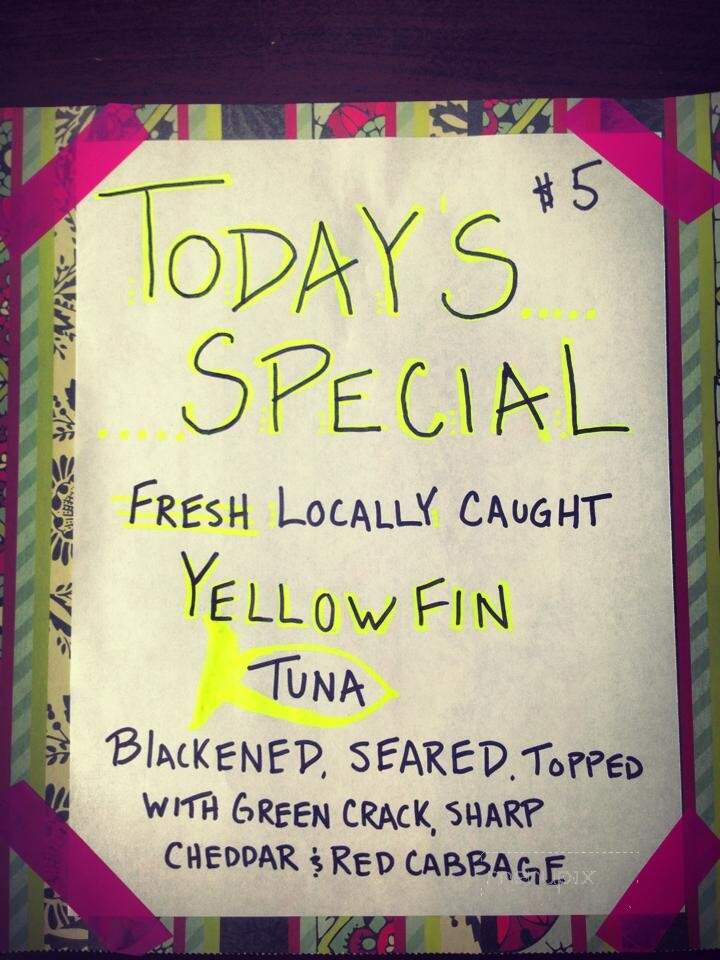 $5
TODAY'S.....
.....SPECIAL
FRESH LOCALLY CAUGHT
YELLOW FIN
TUNA
BLACKENED, SEARED, TOPPED
WITH GREEN CRACK, SHARP
CHEDDAR & RED CABBAGE
menupix